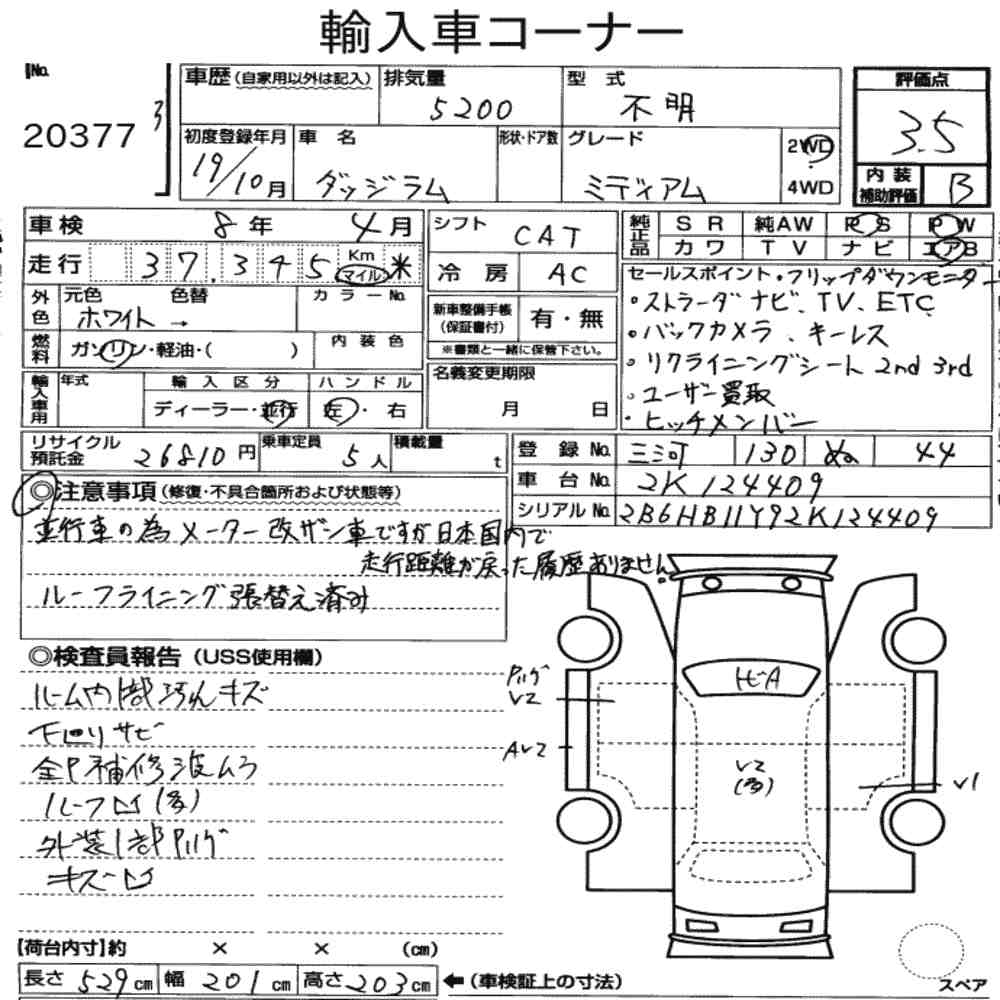 輸入車コーナー
No.
20377
車歴 (自家用以外は記入)
排気量
5200
型 式
不明
評価点
3.5
初度登録年月
19/10月
車 名
ダッジラム
形状・ドア数
グレード
ミディアム
2WD
4WD
内装
補助評価
B
車検 8年 4月
シフト CAT
純正品
SR 純AW PS PW
カワ TV ナビ エアB
走行 37,345 Km マイル 米
冷房 AC
外色
元色 色替
ホワイト→
カラーNo.
新車整備手帳
(保証書付)
有・無
※書類と一緒に保管下さい。
燃料
ガソリン・軽油・( )
内装色
セールスポイント・フリップダウンモニター
・ストラーダナビ、TV、ETC
・バックカメラ、キーレス
・リクライニングシート 2nd 3rd
・ユーザー買取
・ヒッチメンバー
輸入車用
年式
輸入区分
ディーラー・並行
ハンドル
左・右
名義変更期限
月 日
リサイクル
預託金
26810円
乗車定員
5人
積載量
t
登録No. 三河 130 ぬ 44
車台No. 2K124409
シリアルNo. 2B6HB11Y92K124409
◎注意事項 (修復・不具合箇所および状態等)
並行車の為メーター改ザン車ですが日本国内で
走行距離が戻った履歴ありません。
ルーフライニング張替え済み
◎検査員報告 (USS使用欄)
ルーム内1部汚れキズ
下回りサビ
全P補修波ムラ
ルーフ凹(多)
外装1部
キズ凹
V2
AV2
ヒビA
V2
(多)
V1
【荷台内寸】約 × × (cm)
長さ 529cm 幅 201cm 高さ 203cm ←(車検証上の寸法)
スペア